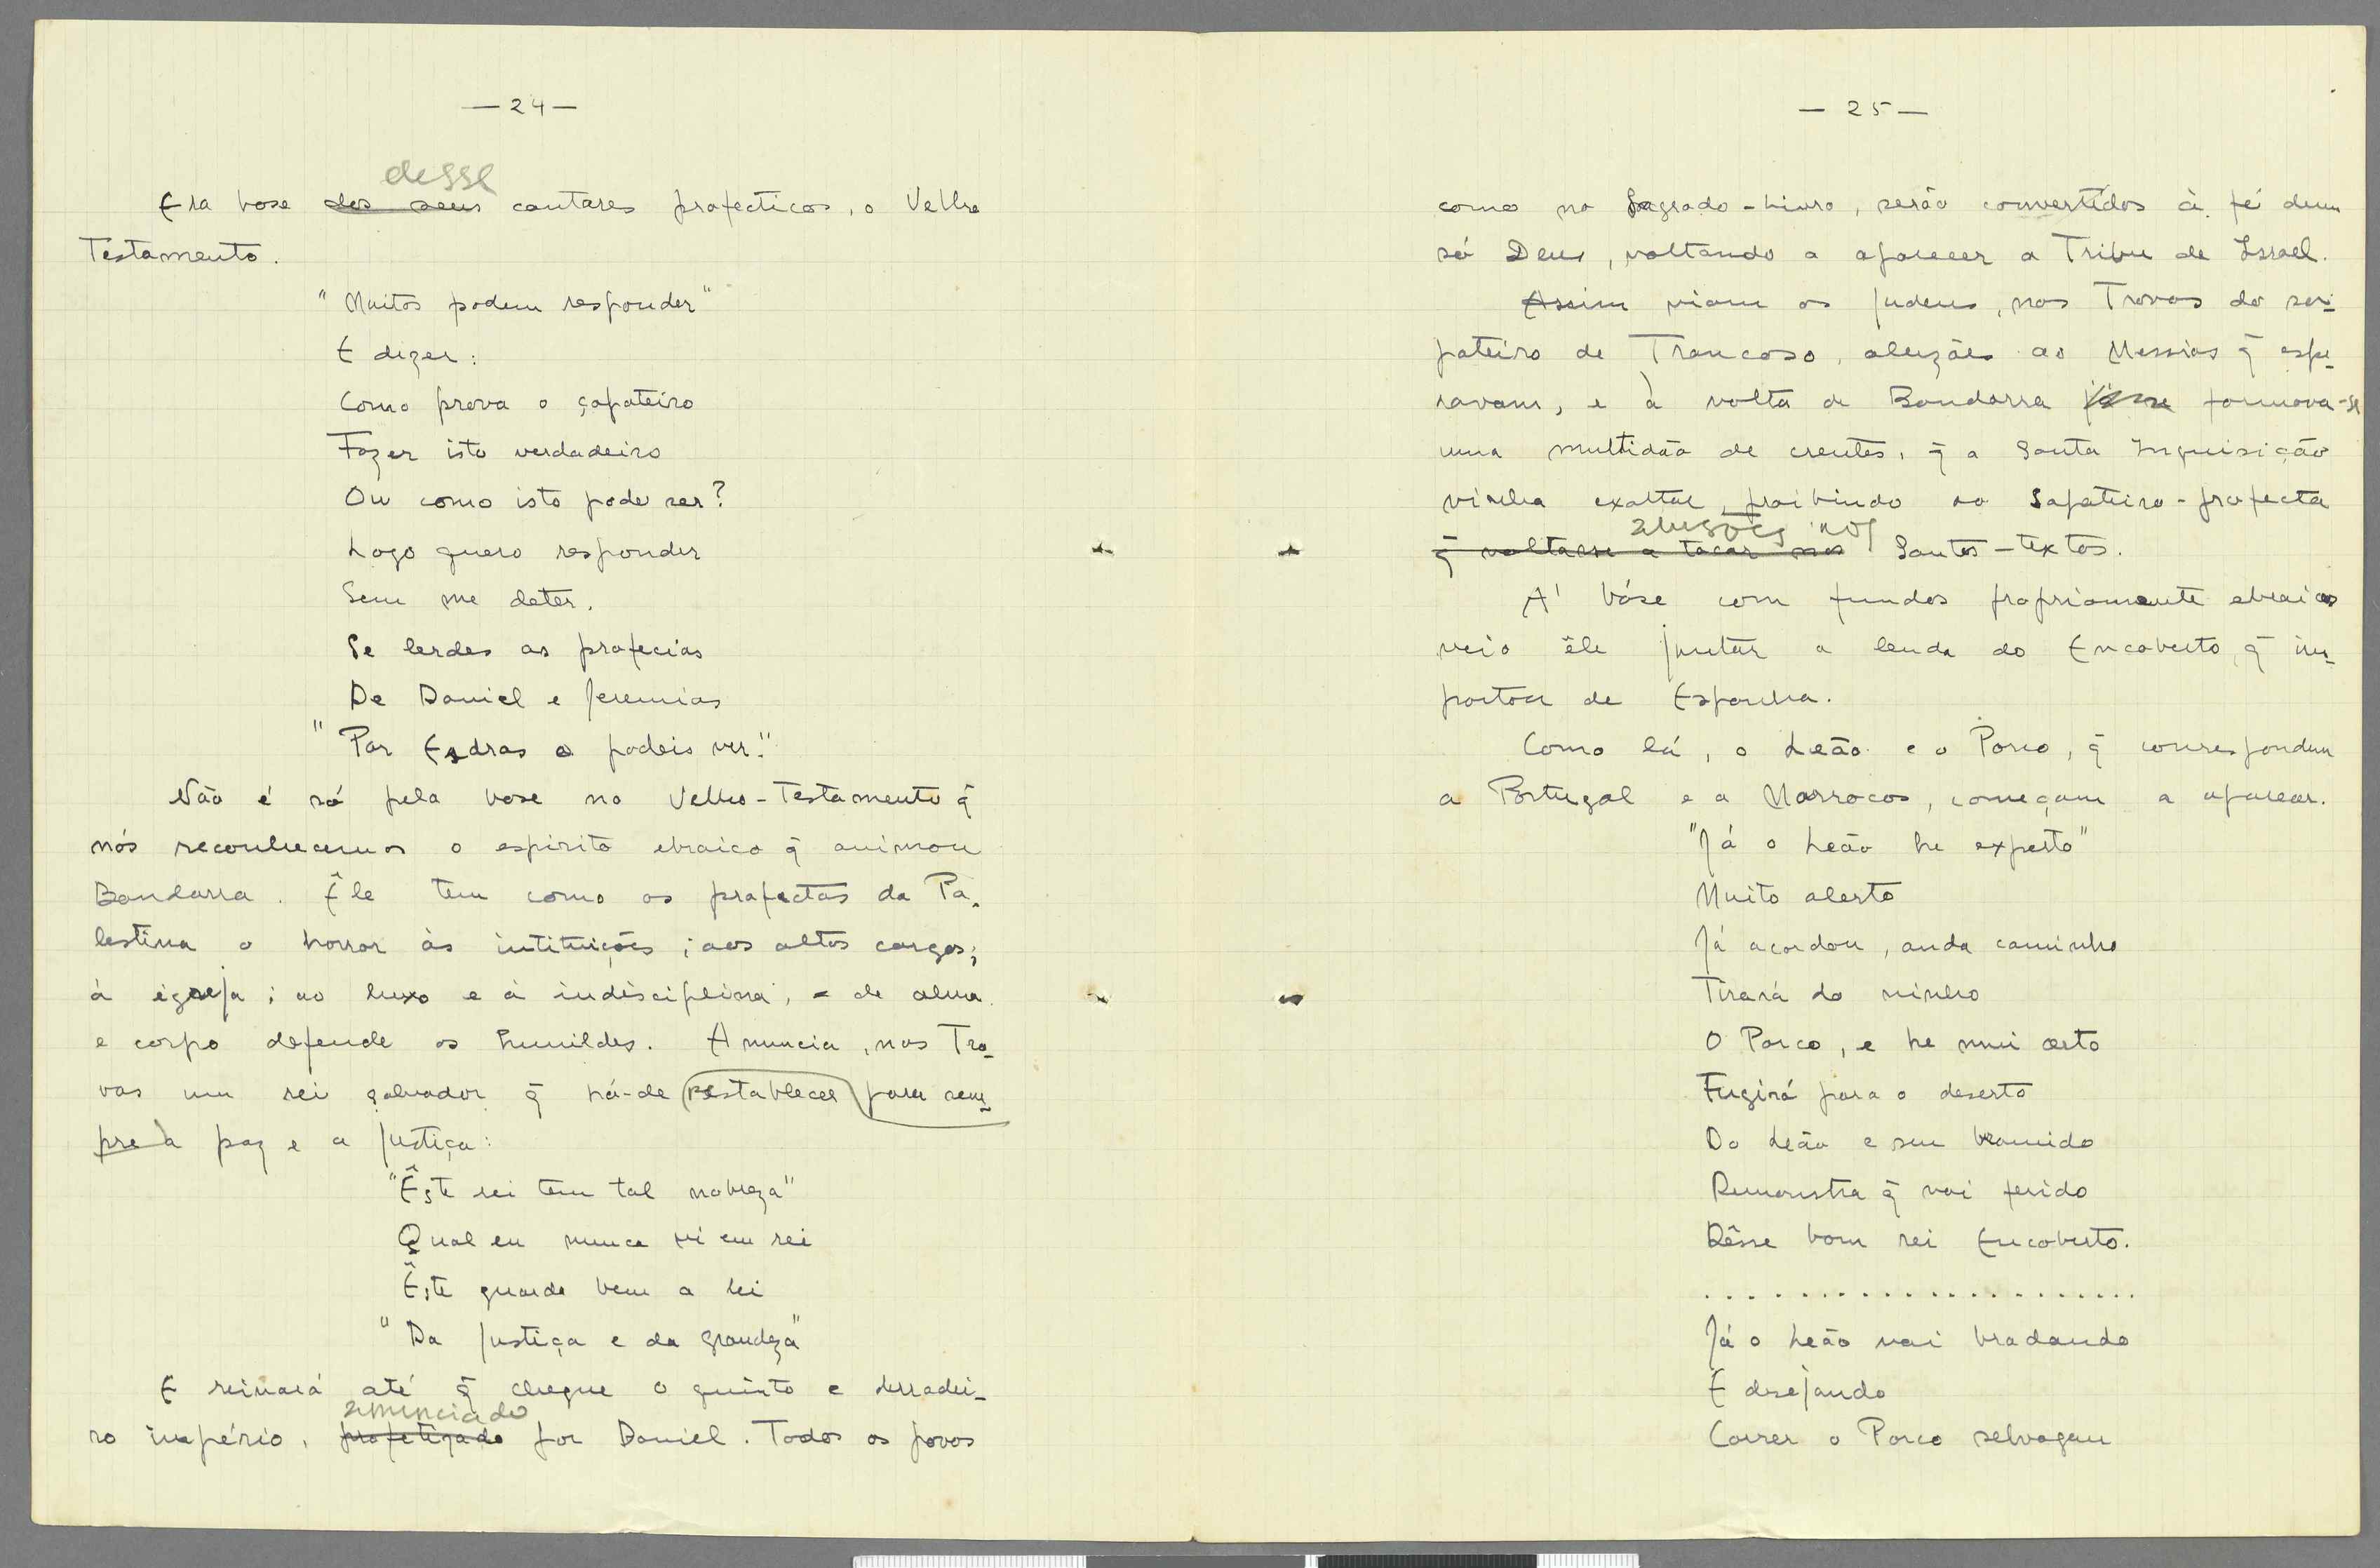 — 24 —
desse
Era base dos seus cantares profecticos, o Velho
Testamento.
"Muitos podem responder"
E dizer:
Como prova o çapateiro
Fazer isto verdadeiro
Ou como isto pode ser?
Logo quero responder
Sem me deter.
Se lerdes as profecias
De Daniel e Jeremias
"Por Esdras o podeis ver."
Não é só pela base no Velho-Testamento q̄
nós reconhecemos o espirito ebraico q̄ animou
Bandarra. Êle tem como os profectas da Pa-
lestina o horror às intituições; aos altos cargos;
à igreja; ao luxo e à indisciplina, e de alma
e corpo defende os humildes. Anuncia, nas Tro-
vas um rei çalvador q̄ há-de restablecer para sem-
pre a paz e a justiça:
"Êste rei tem tal nobreza"
Qual eu nunca vi em rei
Êste guarda bem a lei
"Da justiça e da grandeza"
E reinará até q̄ chegue o quinto e derradei-
anunciado
ro império, profetizado por Daniel. Todos os povos
— 25 —
como no Sagrado-Livro, serão convertidos à fé dum
só Deus, voltando a aparecer a Tribu de Israel.
Assim viam os judeus, nas Trovas do sa-
pateiro de Trancoso, aluzões ao Messias q̄ espe-
ravam, e à volta de Bandarra formava-se
uma multidão de crentes, q̄ a Santa Inquisição
vinha exaltar, proibindo ao Sapateiro-profecta
alusões nos
q̄ voltasse a tocar nos Santos-textos.
A' báse com fundos propriamente ebraicos
veio êle juntar a lenda do Encoberto, q̄ im-
portou de Espanha.
Como lá, o Leão e o Porco, q̄ correspondem
a Portugal e a Marrocos, começam a aparecer.
"Já o Leão he experto"
Muito alerto
Já acordou, anda caminho
Tirará do ninho
O Porco, e he mui certo
Fugirá para o deserto
Do Leão e seu bramido
Demonstra q̄ vai ferido
Dêsse bom rei Encoberto.
.......................
Já o Leão vai bradando
E desejando
Correr o Porco selvagem